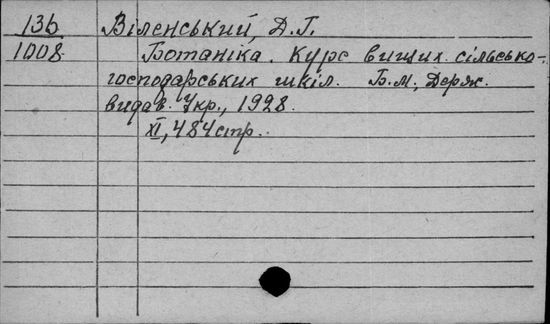 136 Віленський, Д.Г.
1008 Ботаніка. Курс вищих сільсько-
господарських шкіл. Б.М., Держ.
видав. Укр., 1928.
XI, 484 стр.